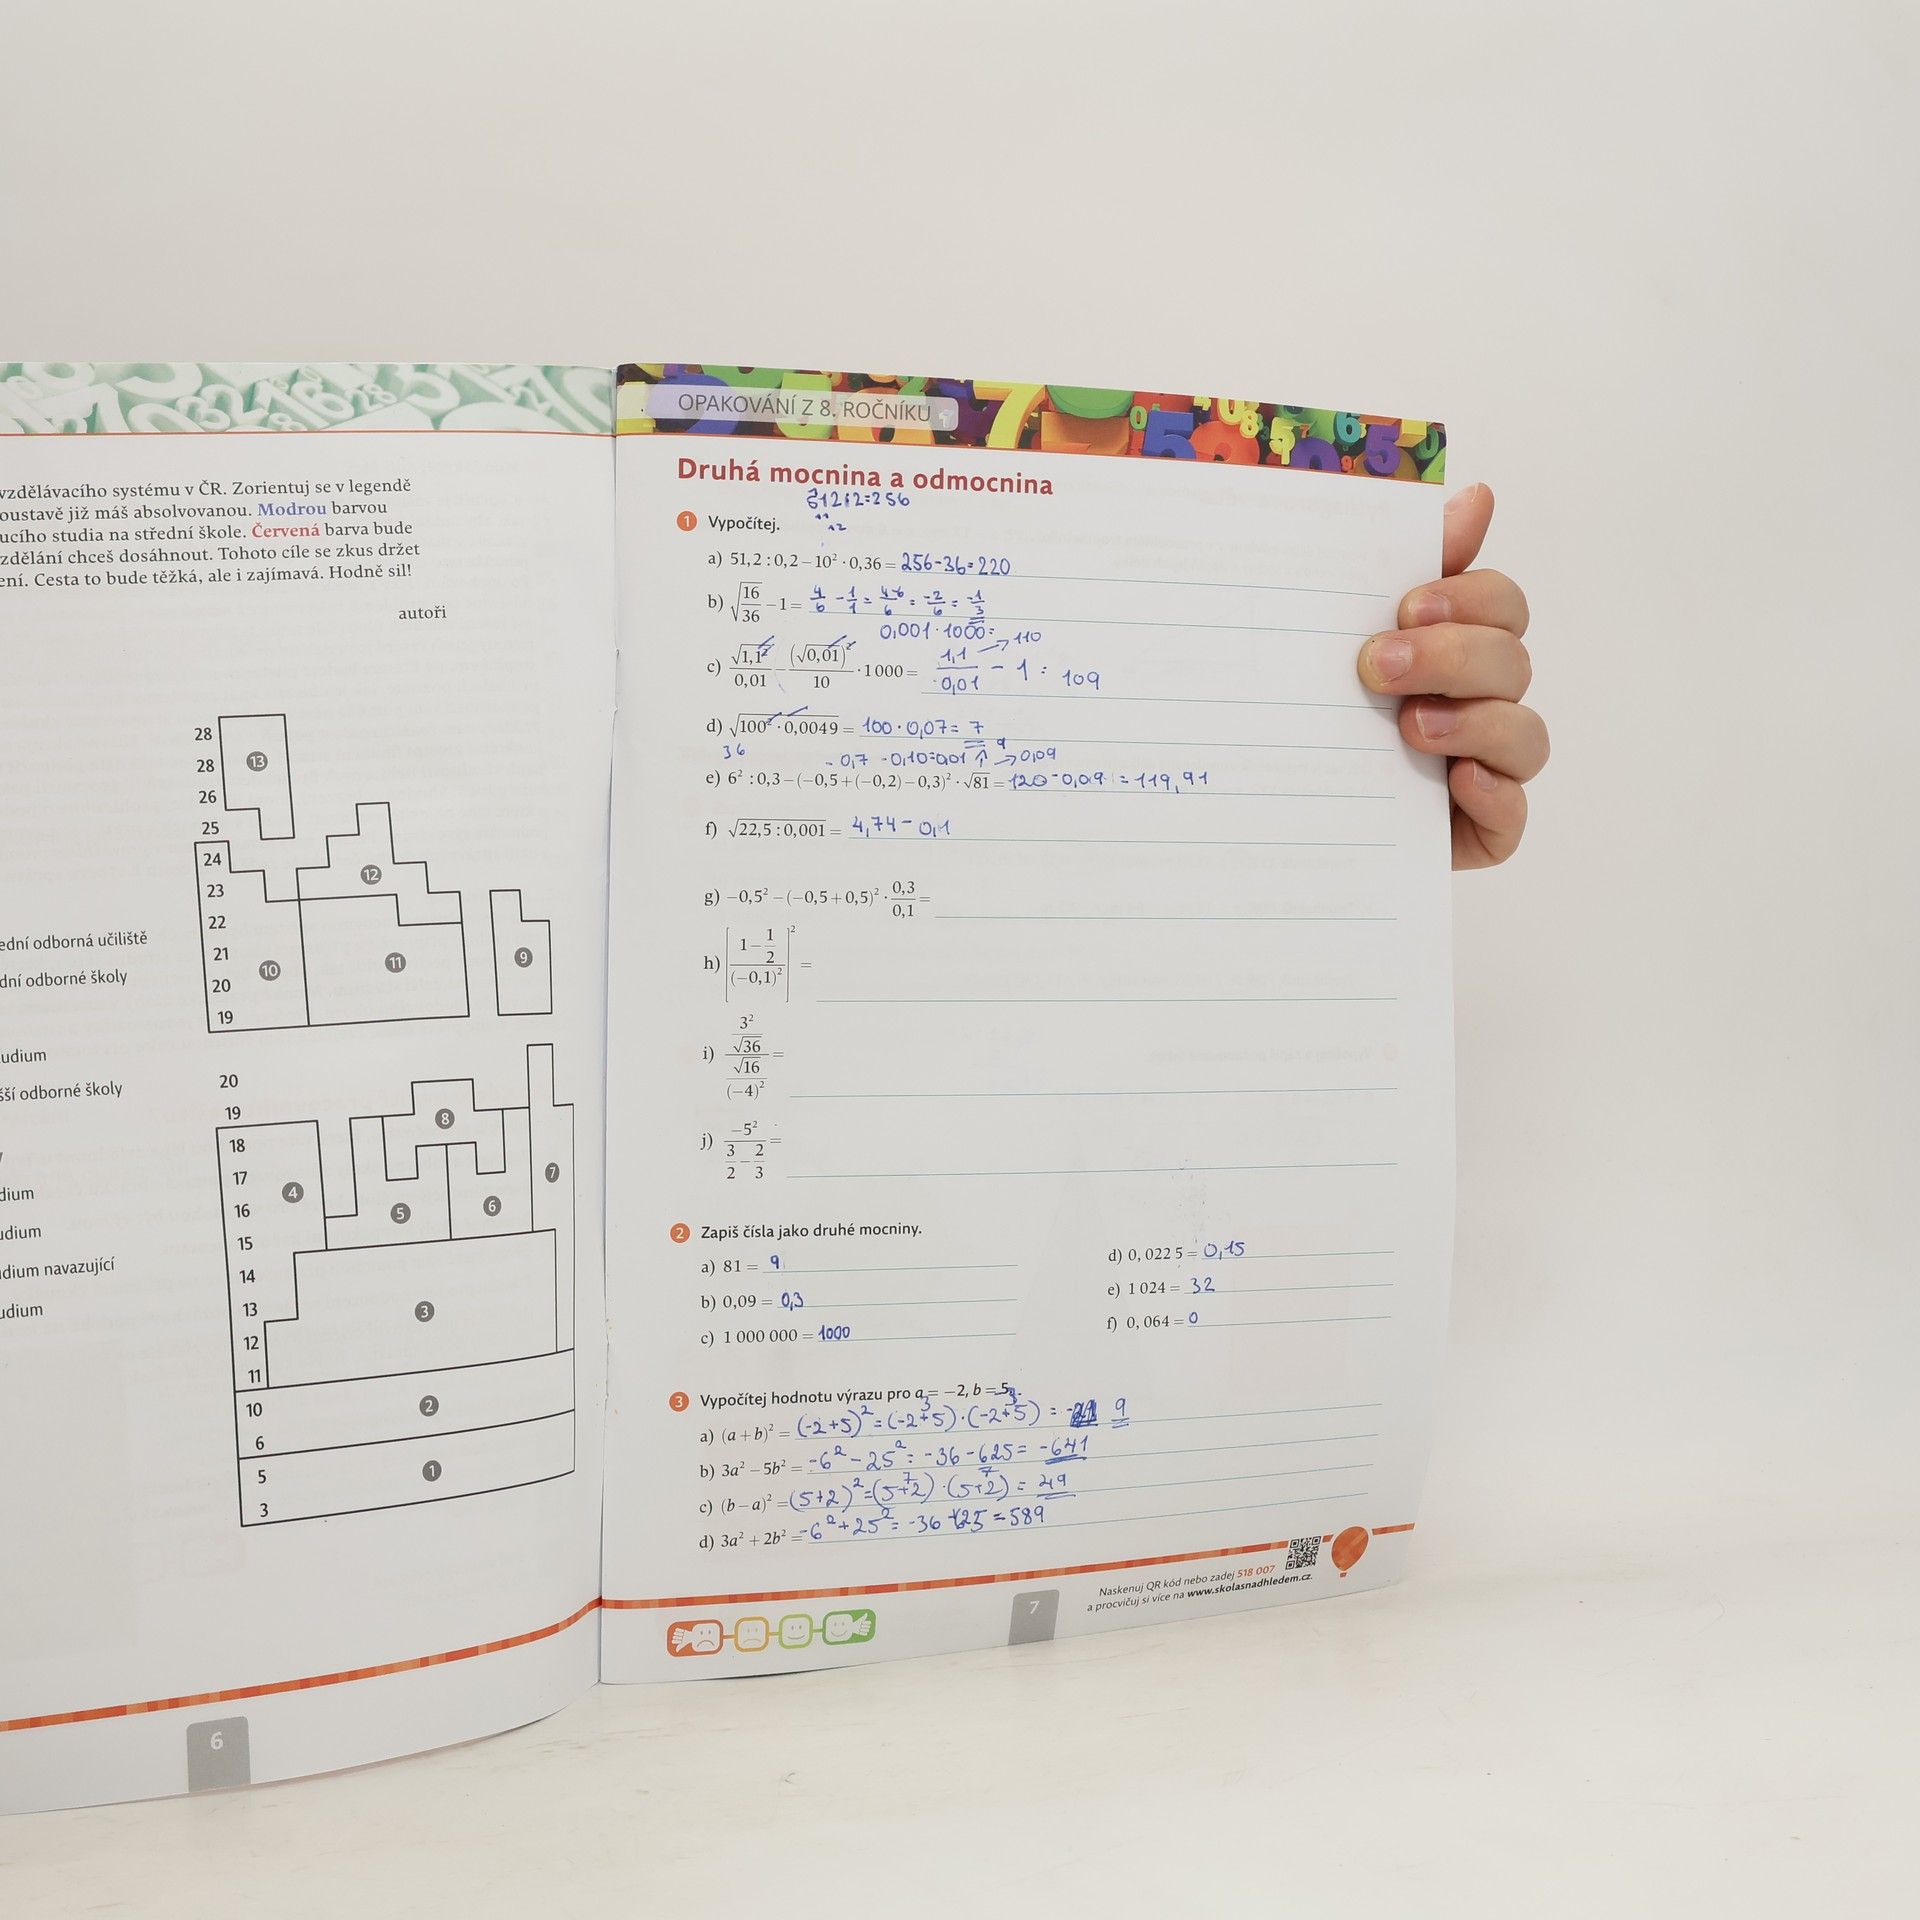 vzdělávacího systému v ČR. Zorientuj se v legendě
oustavě již máš absolvovanou. Modrou barvou
ucího studia na střední škole. Červená barva bude
zdělání chceš dosáhnout. Tohoto cíle se zkus držet
ení. Cesta to bude těžká, ale i zajímavá. Hodně sil!
autoři
28
28
26
25
24
23
22
21
20
19
13
12
10
11
9
ední odborná učiliště
dní odborné školy
udium
šší odborné školy
dium
udium
dium navazující
udium
20
19
18
17
16
15
14
13
12
11
10
6
5
3
8
7
4
5
6
3
2
1
6
OPAKOVÁNÍ Z 8. ROČNÍKU
Druhá mocnina a odmocnina
512:2=256
1 Vypočítej.
a) 51,2 : 0,2 – 10² · 0,36 = 256-36=220
b) √(16/36) – 1 = 4/6 - 1/1 = 4-6/6 = -2/6 = -1/3
0,001 · 1000=
c) √1,1²/0,01 – (√0,01)²/10 · 1 000 = 1,1/0,01 → 110 - 1 = 109
d) √100² · 0,0049 = 100 · 0,07 = 7
36
e) 6² : 0,3 – (–0,5 + (–0,2) – 0,3)² · √81 = 120 - 0,09 = 119,91
f) √22,5 : 0,001 = 4,74 - 0,1
g) –0,5² – (–0,5 + 0,5)² · 0,3/0,1 =
h) [(1 – 1/2)/(–0,1)²]² =
i) (3²/√36)/(√16/(–4)²) =
j) –5²/(3/2 – 2/3) =
2 Zapiš čísla jako druhé mocniny.
a) 81 = 9
b) 0,09 = 0,3
c) 1 000 000 = 1000
d) 0,022 5 = 0,15
e) 1 024 = 32
f) 0,064 = 0
3 Vypočítej hodnotu výrazu pro a = –2, b = 5.
a) (a + b)² = (-2+5)² = (-2+5) · (-2+5) = 9
b) 3a² – 5b² = -6² - 25² = -36 - 625 = -641
c) (b – a)² = (5+2)² = (5+2) · (5+2) = 49
d) 3a² + 2b² = -6² + 25² = -36 + 625 = 589
Naskenuj QR kód nebo zadej 518 007
a procvičuj si více na www.skolasnadhledem.cz.
7